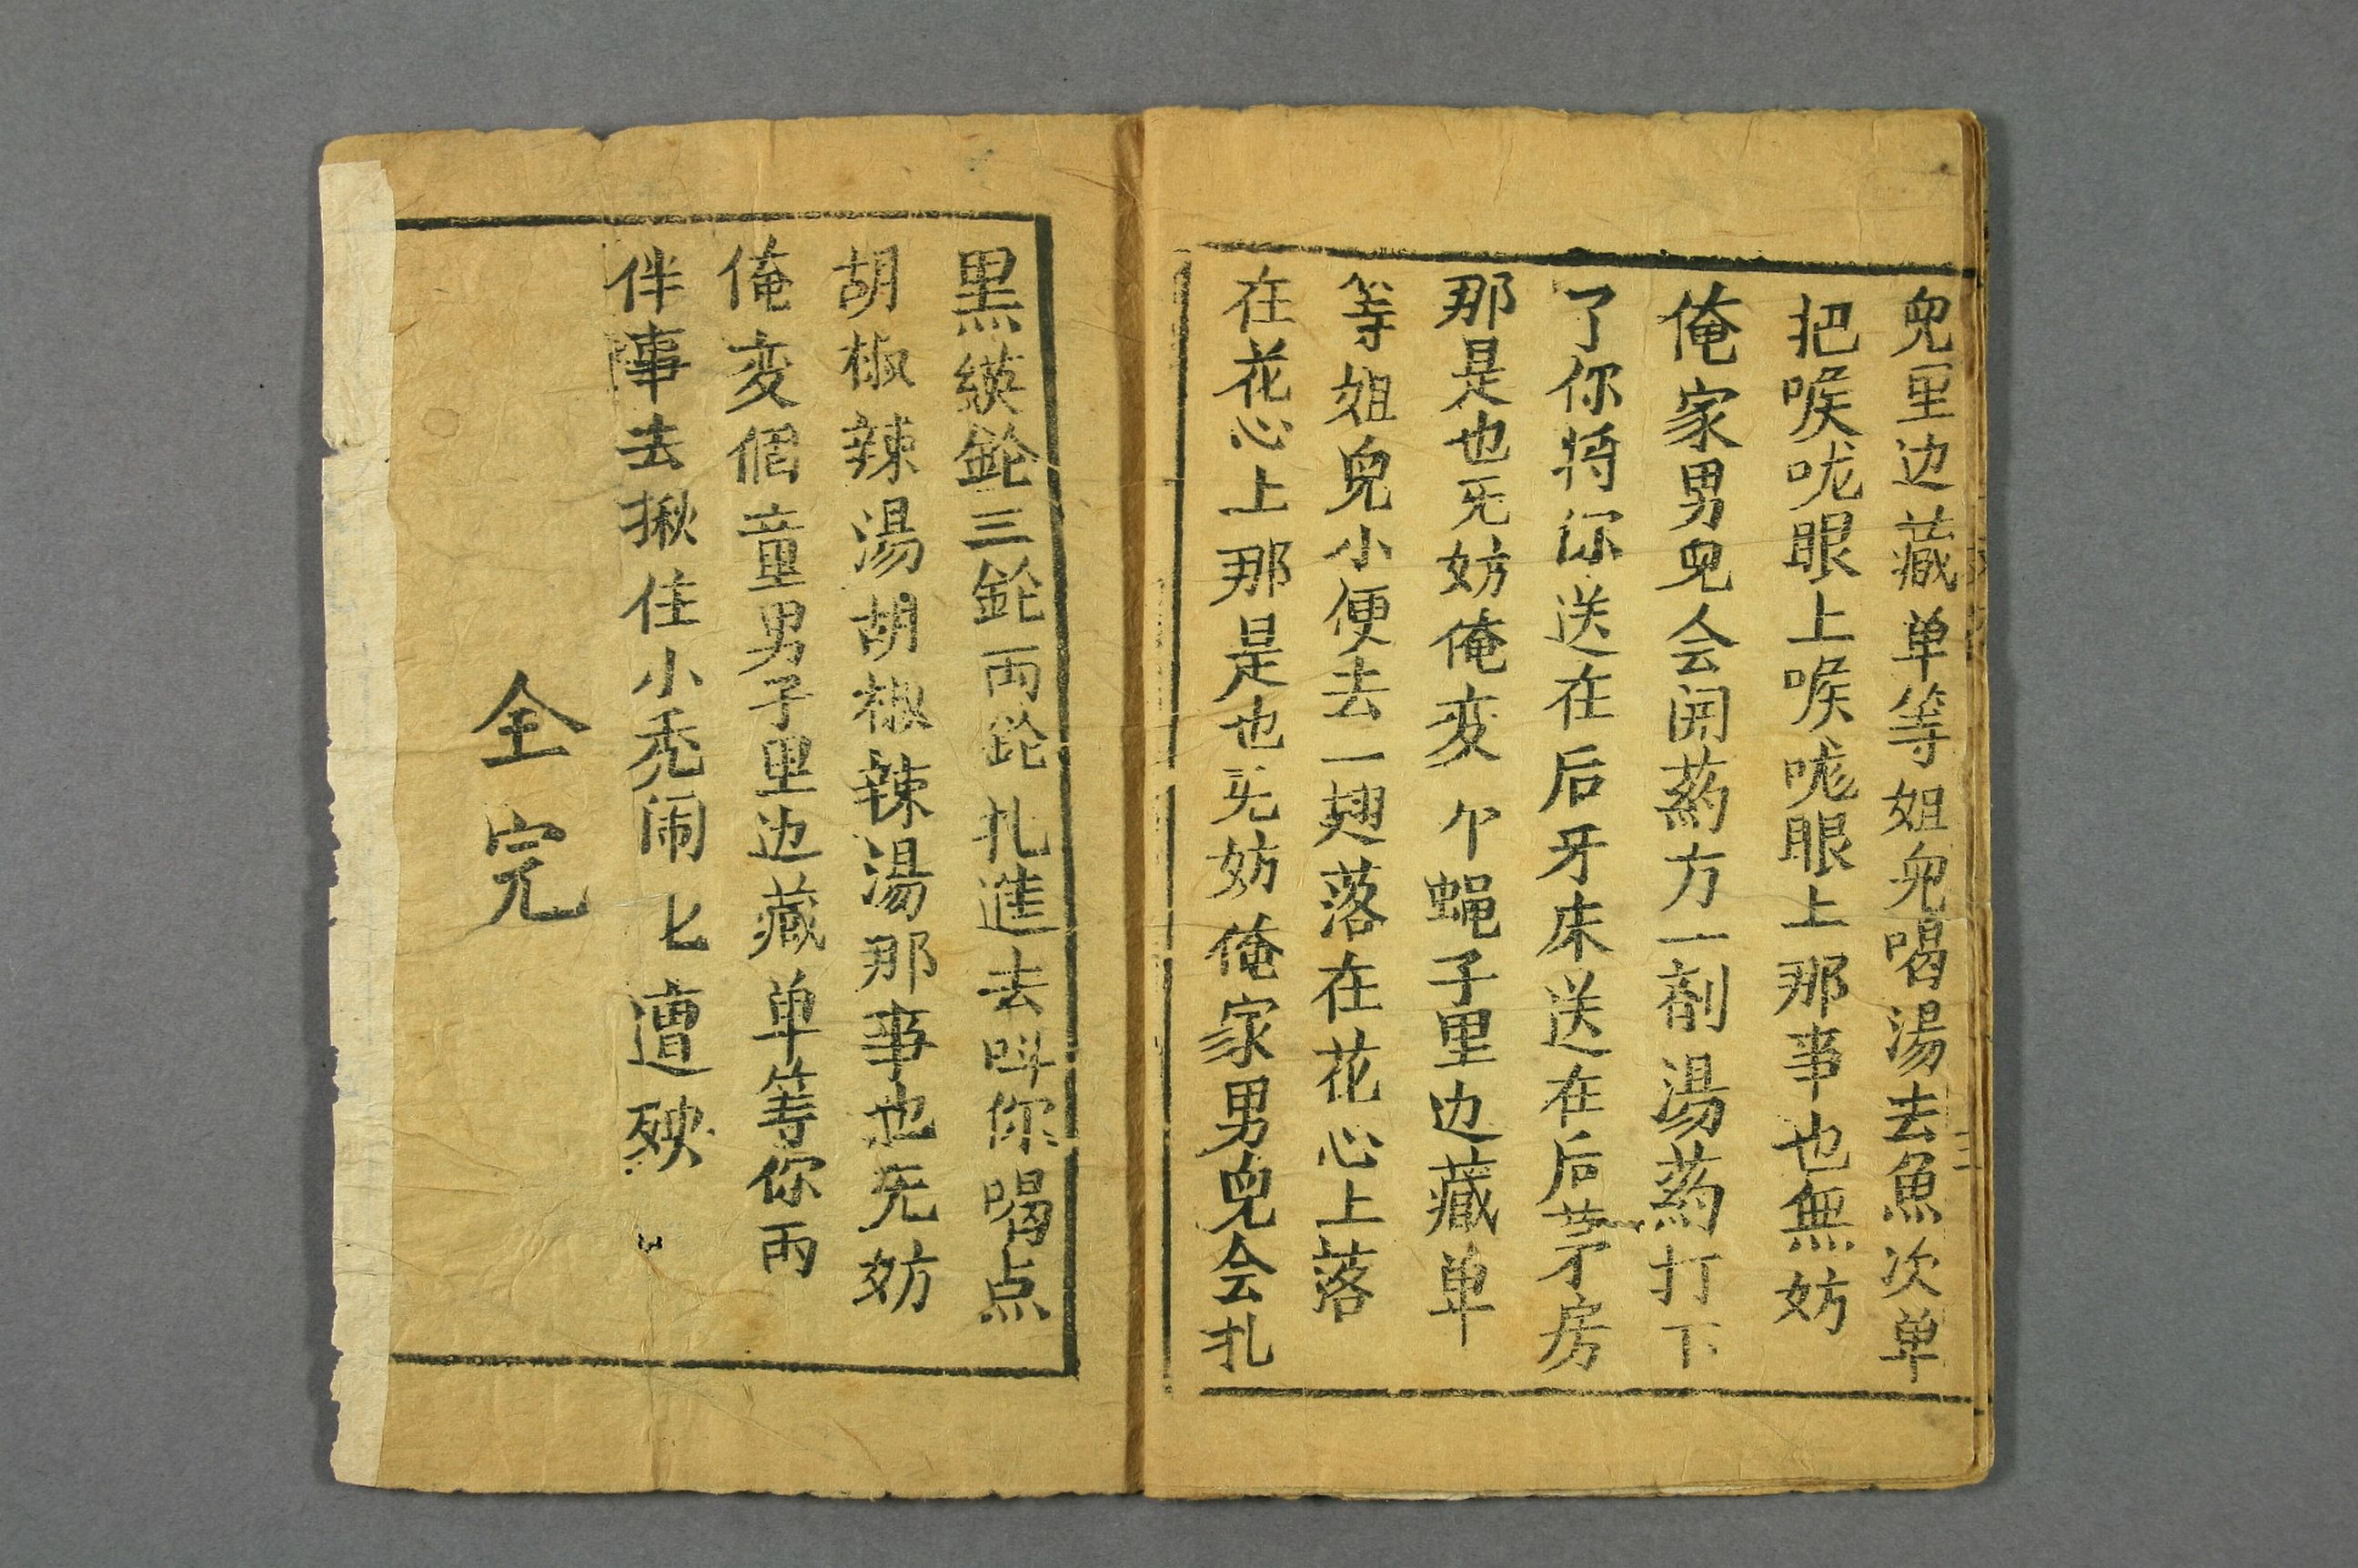 児里边藏单等姐児喝湯去魚次单
把喉咙眼上喉咙眼上那事也無妨
俺家男児会闲药方一剤湯药打下
了你将你送在后牙床送在后茅房
那是也旡妨俺变个蝇子里边藏单
等姐児小便去一翅落在花心上落
在花心上那是也旡妨俺家男児会扎
黒鍈鈴三鈴両鈴扎進去叫你喝点
胡椒辣湯胡椒辣湯那事也旡妨
俺变個童男子里边藏单等你両
伴事去揪住小秃闹匕遭殃
全完